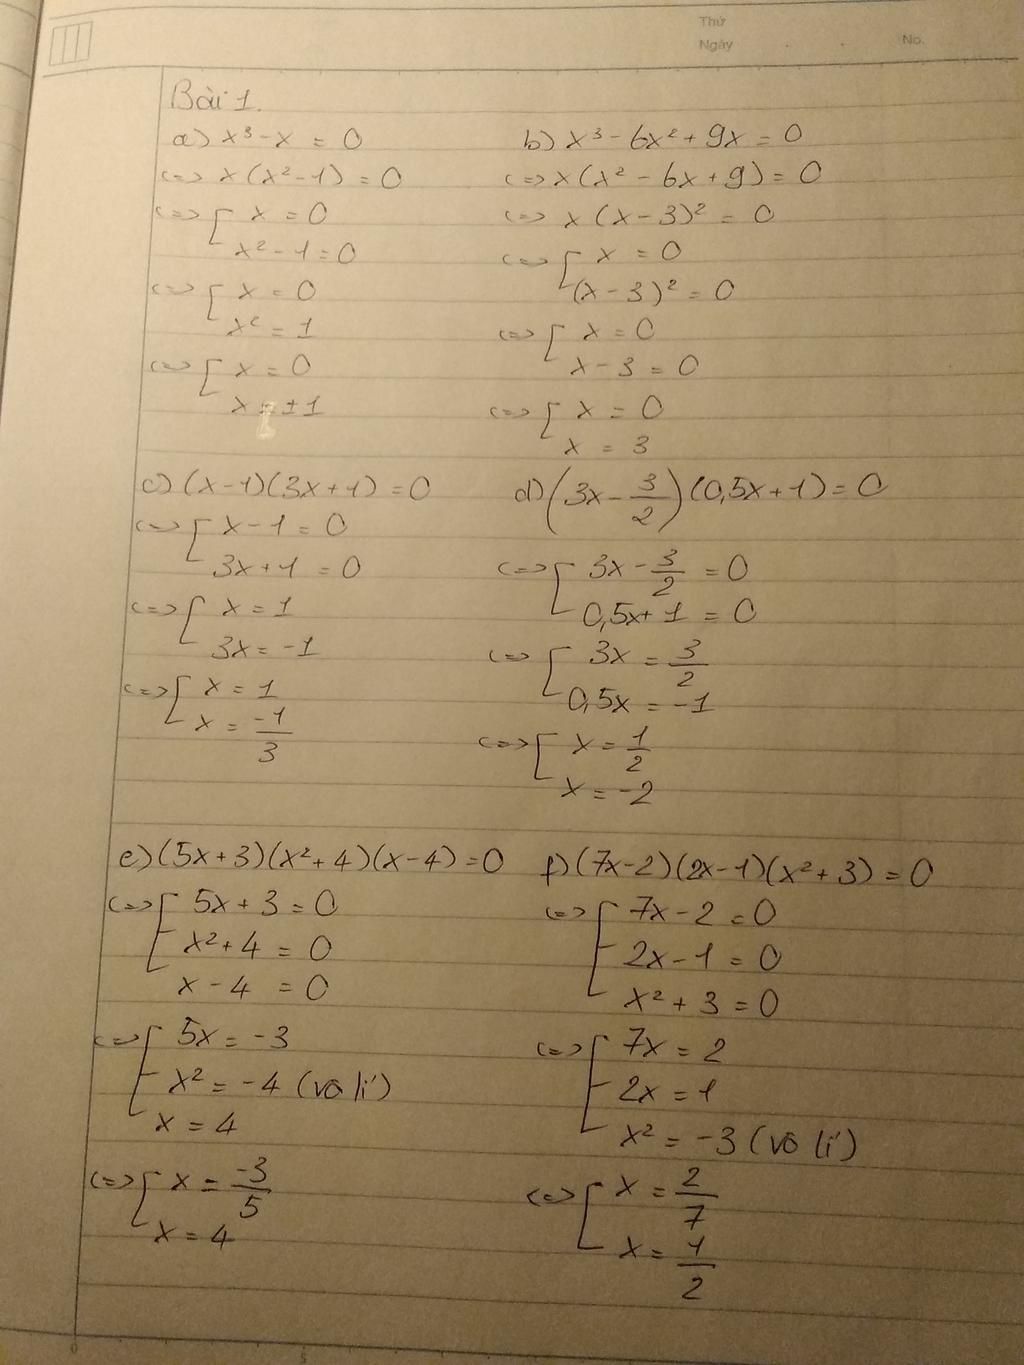 Thứ
Ngày . . No.
Bài 1.
a) x³ - x = 0
<=> x(x² - 1) = 0
<=> [ x = 0
x² - 1 = 0
<=> [ x = 0
x² = 1
<=> [ x = 0
x = ±1
b) x³ - 6x² + 9x = 0
<=> x(x² - 6x + 9) = 0
<=> x(x - 3)² = 0
<=> [ x = 0
(x - 3)² = 0
<=> [ x = 0
x - 3 = 0
<=> [ x = 0
x = 3
c) (x - 1)(3x + 1) = 0
<=> [ x - 1 = 0
3x + 1 = 0
<=> [ x = 1
3x = -1
<=> [ x = 1
x = -1/3
d) (3x - 3/2)(0,5x + 1) = 0
<=> [ 3x - 3/2 = 0
0,5x + 1 = 0
<=> [ 3x = 3/2
0,5x = -1
<=> [ x = 1/2
x = -2
e) (5x + 3)(x² + 4)(x - 4) = 0
<=> [ 5x + 3 = 0
x² + 4 = 0
x - 4 = 0
<=> [ 5x = -3
x² = -4 (vô lí)
x = 4
<=> [ x = -3/5
x = 4
f) (7x - 2)(2x - 1)(x² + 3) = 0
<=> [ 7x - 2 = 0
2x - 1 = 0
x² + 3 = 0
<=> [ 7x = 2
2x = 1
x² = -3 (vô lí)
<=> [ x = 2/7
x = 1/2
0 5